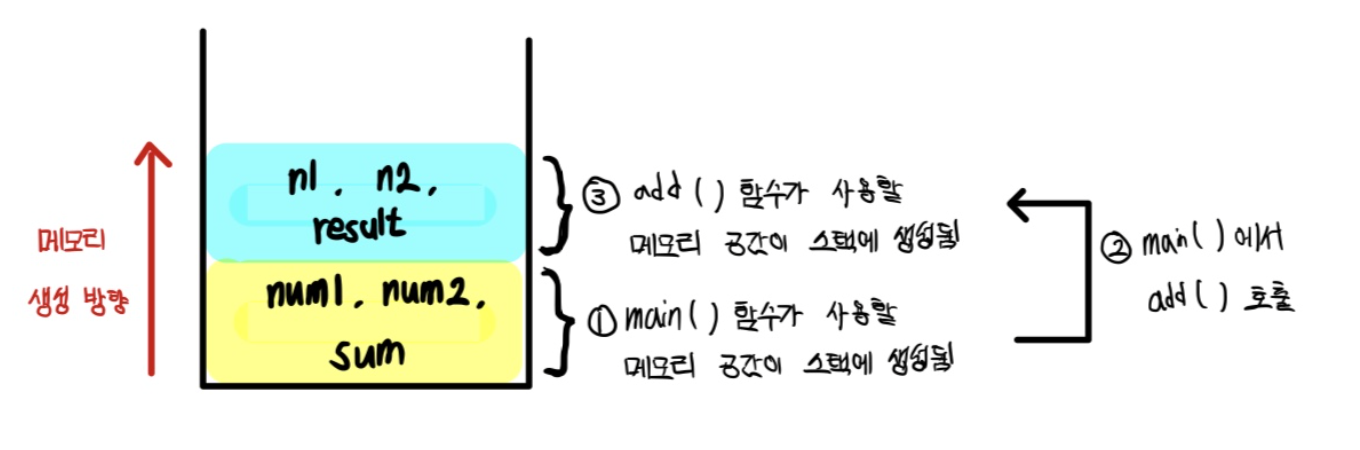 메모리
생성 방향
n1, n2,
result
num1, num2,
sum
③ add() 함수가 사용할
메모리 공간이 스택에 생성됨
① main() 함수가 사용할
메모리 공간이 스택에 생성됨
② main()에서
add() 호출